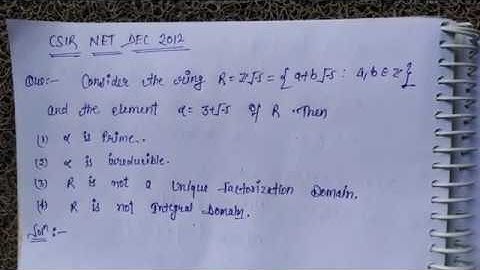 CSIR NET DEC 2012
Que:- Consider the ring R = Z√-5 = { a+b√-5 : a, b ∈ Z }
and the element α = 3+√-5 of R. Then
(1) α is Prime.
(2) α is irreducible.
(3) R is not a Unique Factorization Domain.
(4) R is not Integral Domain.
Soln:-